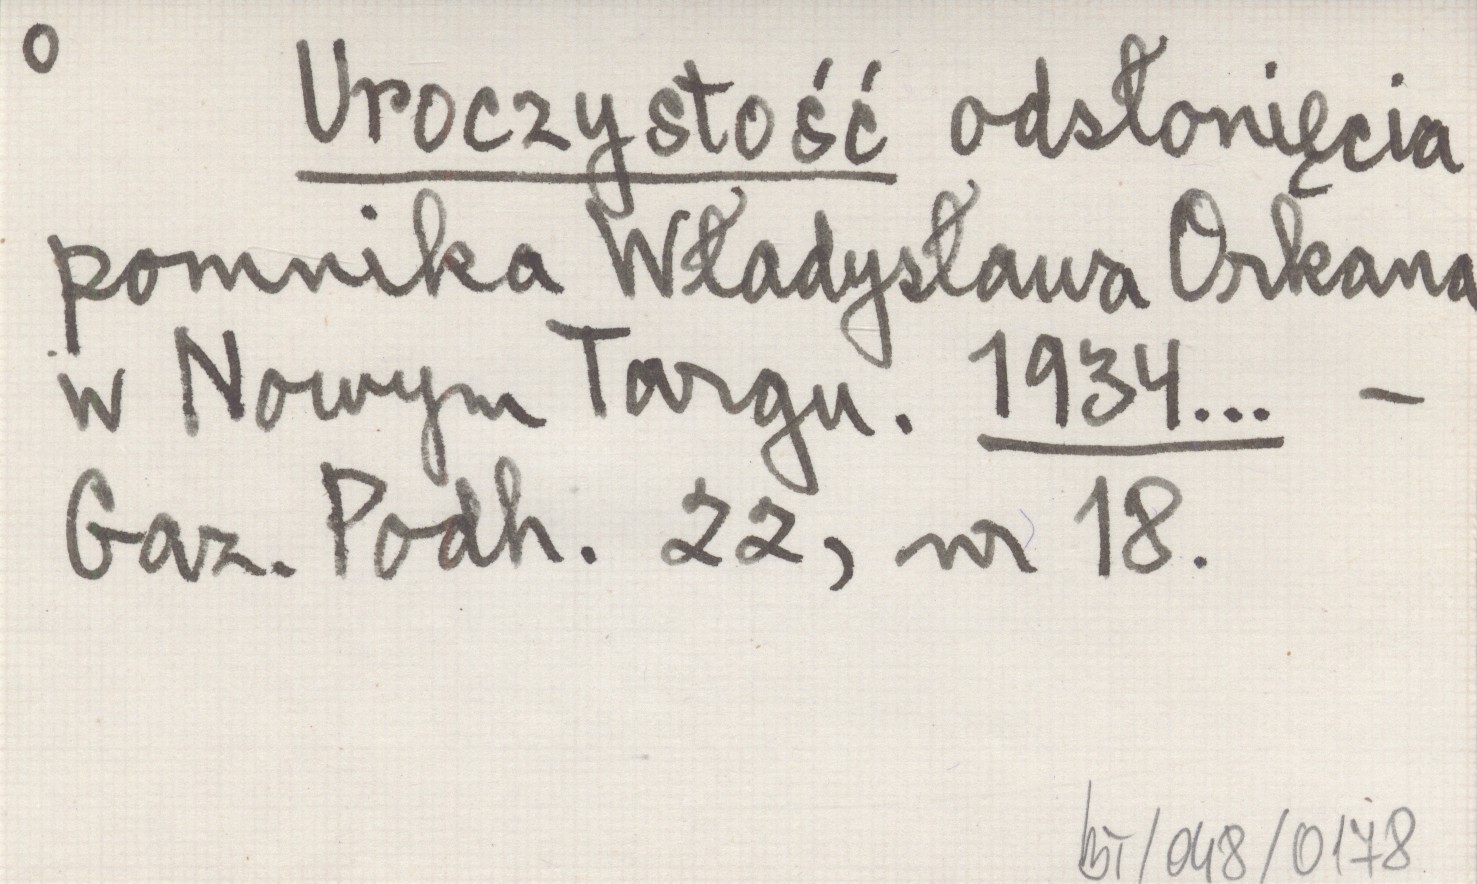 o
Uroczystość odsłonięcia
pomnika Władysława Orkana
w Nowym Targu. 1934... –
Gaz. Podh. 22, nr 18.
bt/048/0178